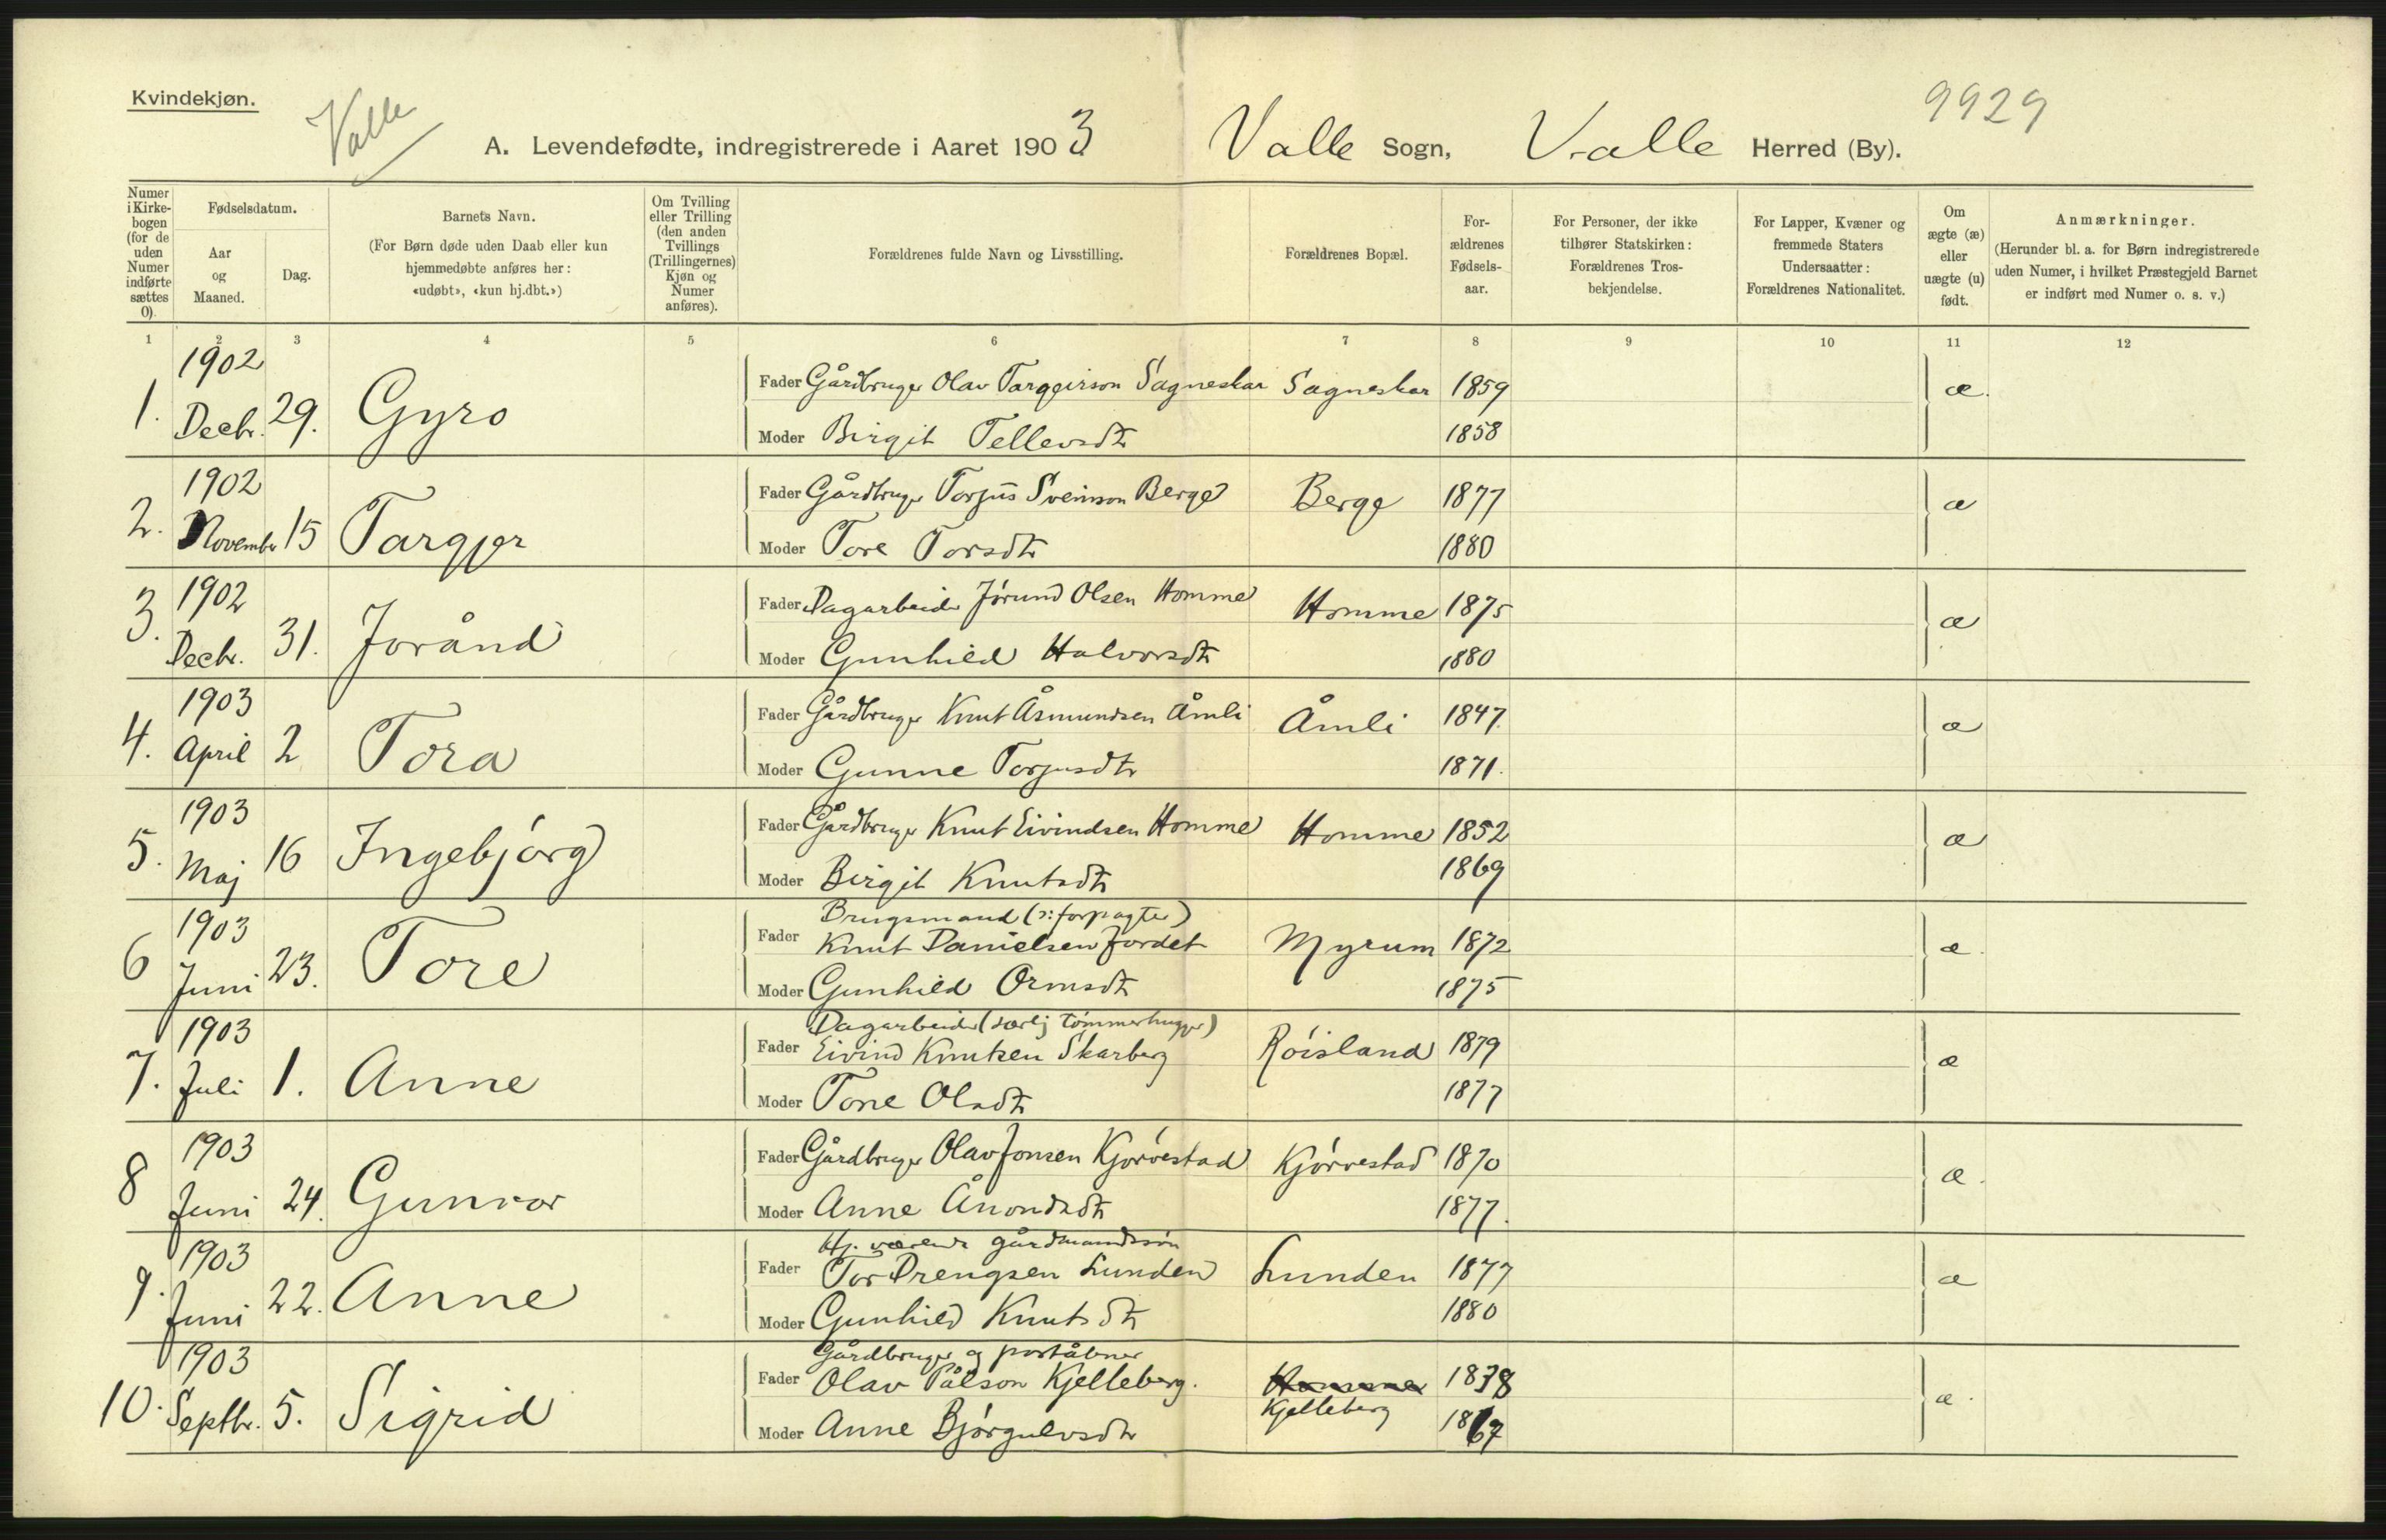 Kvindekjøn.
Valle
9929
A. Levendefødte, indregistrerede i Aaret 1903 Valle Sogn, Valle Herred (By).
Numer i Kirkebogen (for de uden Numer indførte sættes 0).
Fødselsdatum.
Aar og Maaned.
Dag.
Barnets Navn.
(For Børn døde uden Daab eller kun hjemmedøbte anføres her: «udøbt», «kun hj.dbt.»)
Om Tvilling eller Trilling (den anden Tvillings (Trillingernes) Kjøn og Numer anføres).
Forældrenes fulde Navn og Livsstilling.
Forældrenes Bopæl.
Forældrenes Fødselsaar.
For Personer, der ikke tilhører Statskirken: Forældrenes Trosbekjendelse.
For Lapper, Kvæner og fremmede Staters Undersaatter: Forældrenes Nationalitet.
Om ægte (æ) eller uægte (u) født.
Anmærkninger.
(Herunder bl. a. for Børn indregistrerede uden Numer, i hvilket Præstegjeld Barnet er indført med Numer o. s. v.)
1 2 3 4 5 6 7 8 9 10 11 12
1. 1902 Decbr. 29. Gyro
Fader Gårdbruger Olav Targeirson Sagneskar Sagneskar 1859 æ.
Moder Birgit Tellevsdtr 1858
2. 1902 November 15 Targjer
Fader Gårdbruger Torjus Sveinson Berge Berge 1877 æ
Moder Tore Torsdtr 1880
3. 1902 Decbr. 31. Joránd
Fader Dagarbeider Jørund Olsen Homme Homme 1875 æ
Moder Gunhild Halvorsdtr 1880
4. 1903 April 2 Tora
Fader Gårdbruger Knut Åsmundsen Åmli Åmli 1847. æ
Moder Gunne Torjusdtr 1871.
5. 1903 Maj 16 Ingebjórg
Fader Gårdbruger Knut Eivindsen Homme Homme 1852 æ
Moder Birgit Knutsdtr 1869
6 1903 Juni 23. Tore
Brugsmand (ɔ: forpagter)
Fader Knut Danielsen Jordet Myrum 1872 æ.
Moder Gunhild Ormsdtr 1875
7. 1903 Juli 1. Anne
Dagarbeider (særlj tómmerhugger)
Fader Eivind Knutsen Skarberg Róisland 1879 æ
Moder Tone Olsdtr 1877
8 1903 Juni 24. Gunvor
Fader Gårdbruger Olav Jonsen Kjórvestad Kjórvestad 1870 æ.
Moder Anne Ånondsdtr 1877.
9. 1903 Juni 22. Anne
Hj. værende gårdmandssón
Fader Tor Drengsen Lunden Lunden 1877 æ
Moder Gunhild Knutsdtr 1880
10. 1903 Septbr. 5. Sigrid
Gårdbruger og poståbner
Fader Olav Pålson Kjelleberg. Homme 1838 æ.
Kjelleberg
Moder Anne Bjórgulvsdtr 1867